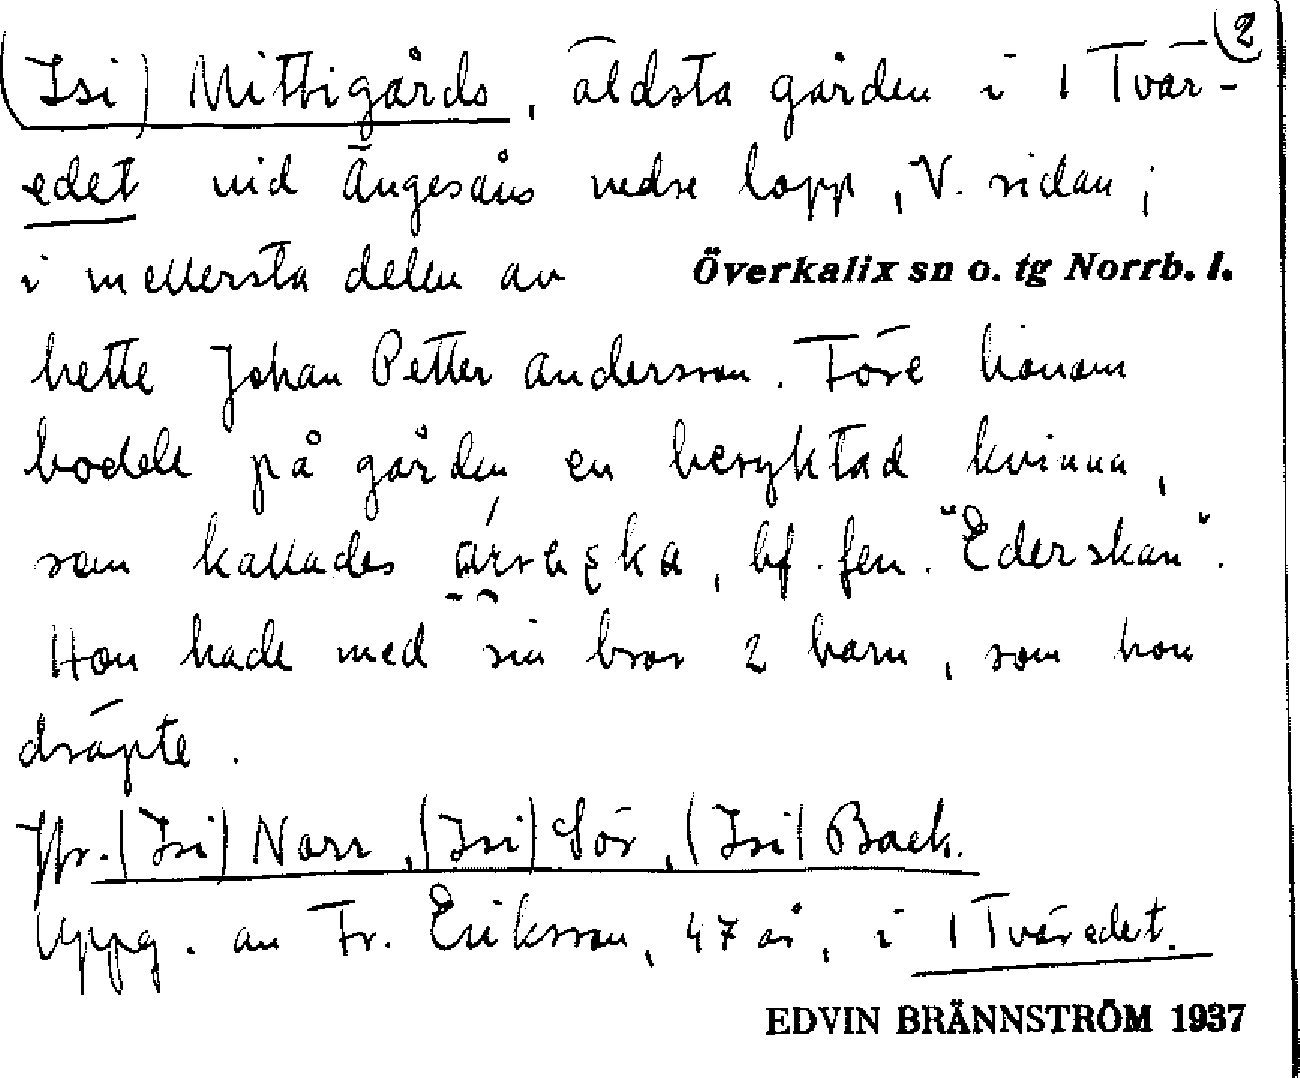 2
(Isi) Mittigårds, äldsta gården i 1 Tvär-
edet vid Ängesåns nedre lopp, V. sidan;
i mellersta delen av Överkalix sn o. tg Norrb. l.
hette Johan Petter Andersson. Före honom
bodde på gården en beryktad kvinna,
som kallades , bf. fen. "Ederskan".
Hon hade med sin bror 2 barn, som hon
dräpte.
Jfr. (Isi) Norr, (Isi) Sör, (Isi) Back.
Uppg. av Fr. Eriksson, 47 år, i 1 Tväredet.
EDVIN BRÄNNSTRÖM 1937